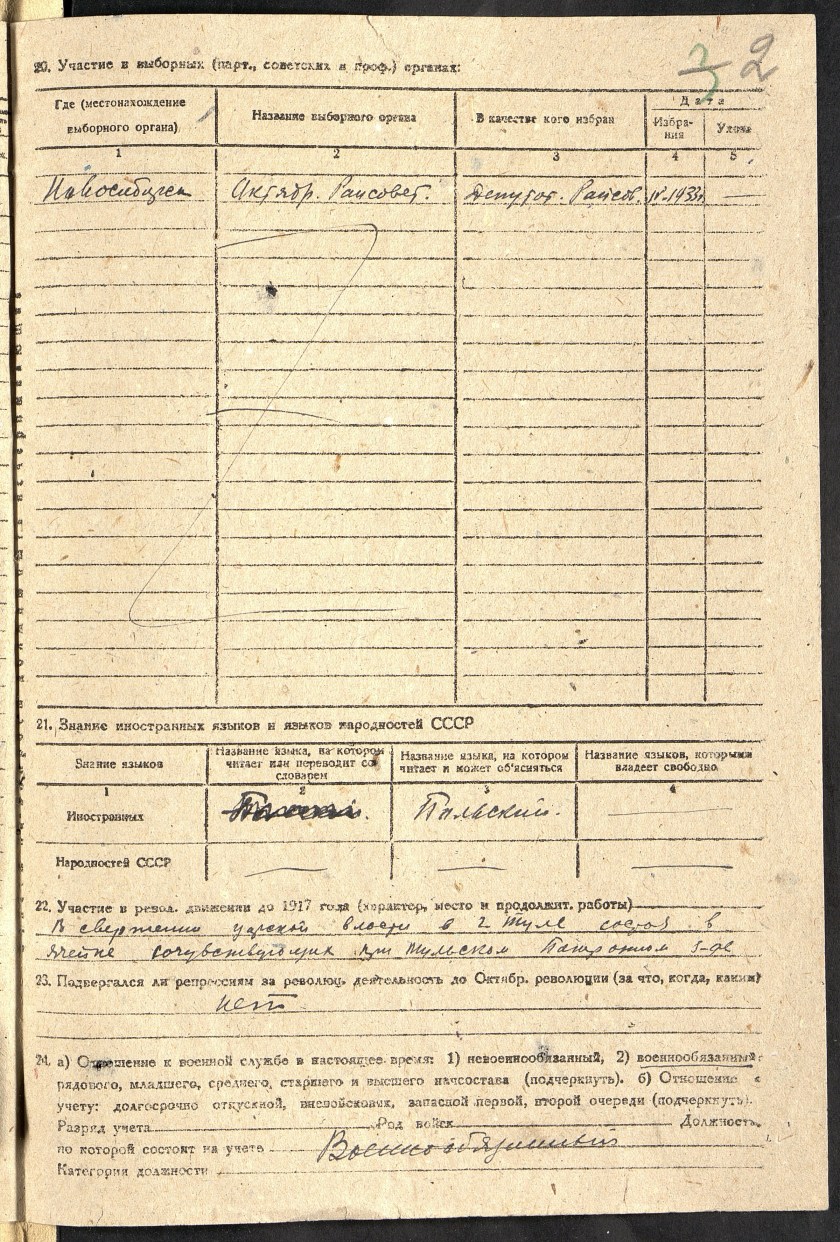 2
20. Участие в выборных (парт., советских и проф.) органах:
Где (местонахождение выборного органа)
Название выборного органа
В качестве кого избран
Дата
Избра-
ния
1 2 3 4 5
Новосибирск Октябр. Райсовет. Депутат. Райсов. 1933
21. Знание иностранных языков и языков народностей СССР
Знание языков
Название языка, на котором
читает или переводит со
словарем
Название языка, на котором
читает и может об'ясняться
Название языков, которыми
владеет свободно
1 2 3 4
Иностранных Польский.
Народностей СССР
22. Участие в револ. движении до 1917 года (характер, место и продолжит. работы)
В свержении царской власти в г. Туле состоя в
ячейке сочувствующих при Тульском Патронном з-де
23. Подвергался ли репрессиям за революц. деятельность до Октябр. революции (за что, когда, каким)
нет
24. а) Отношение к военной службе в настоящее время: 1) невоеннообязанный, 2) военнообязанный:
рядового, младшего, среднего, старшего и высшего начсостава (подчеркнуть). б) Отношение к
учету: долгосрочно отпускной, вневойсковик, запасной первой, второй очереди (подчеркнуть).
Разряд учета Род войск Должность,
по которой состоит на учете Военнообязанный
Категория должности